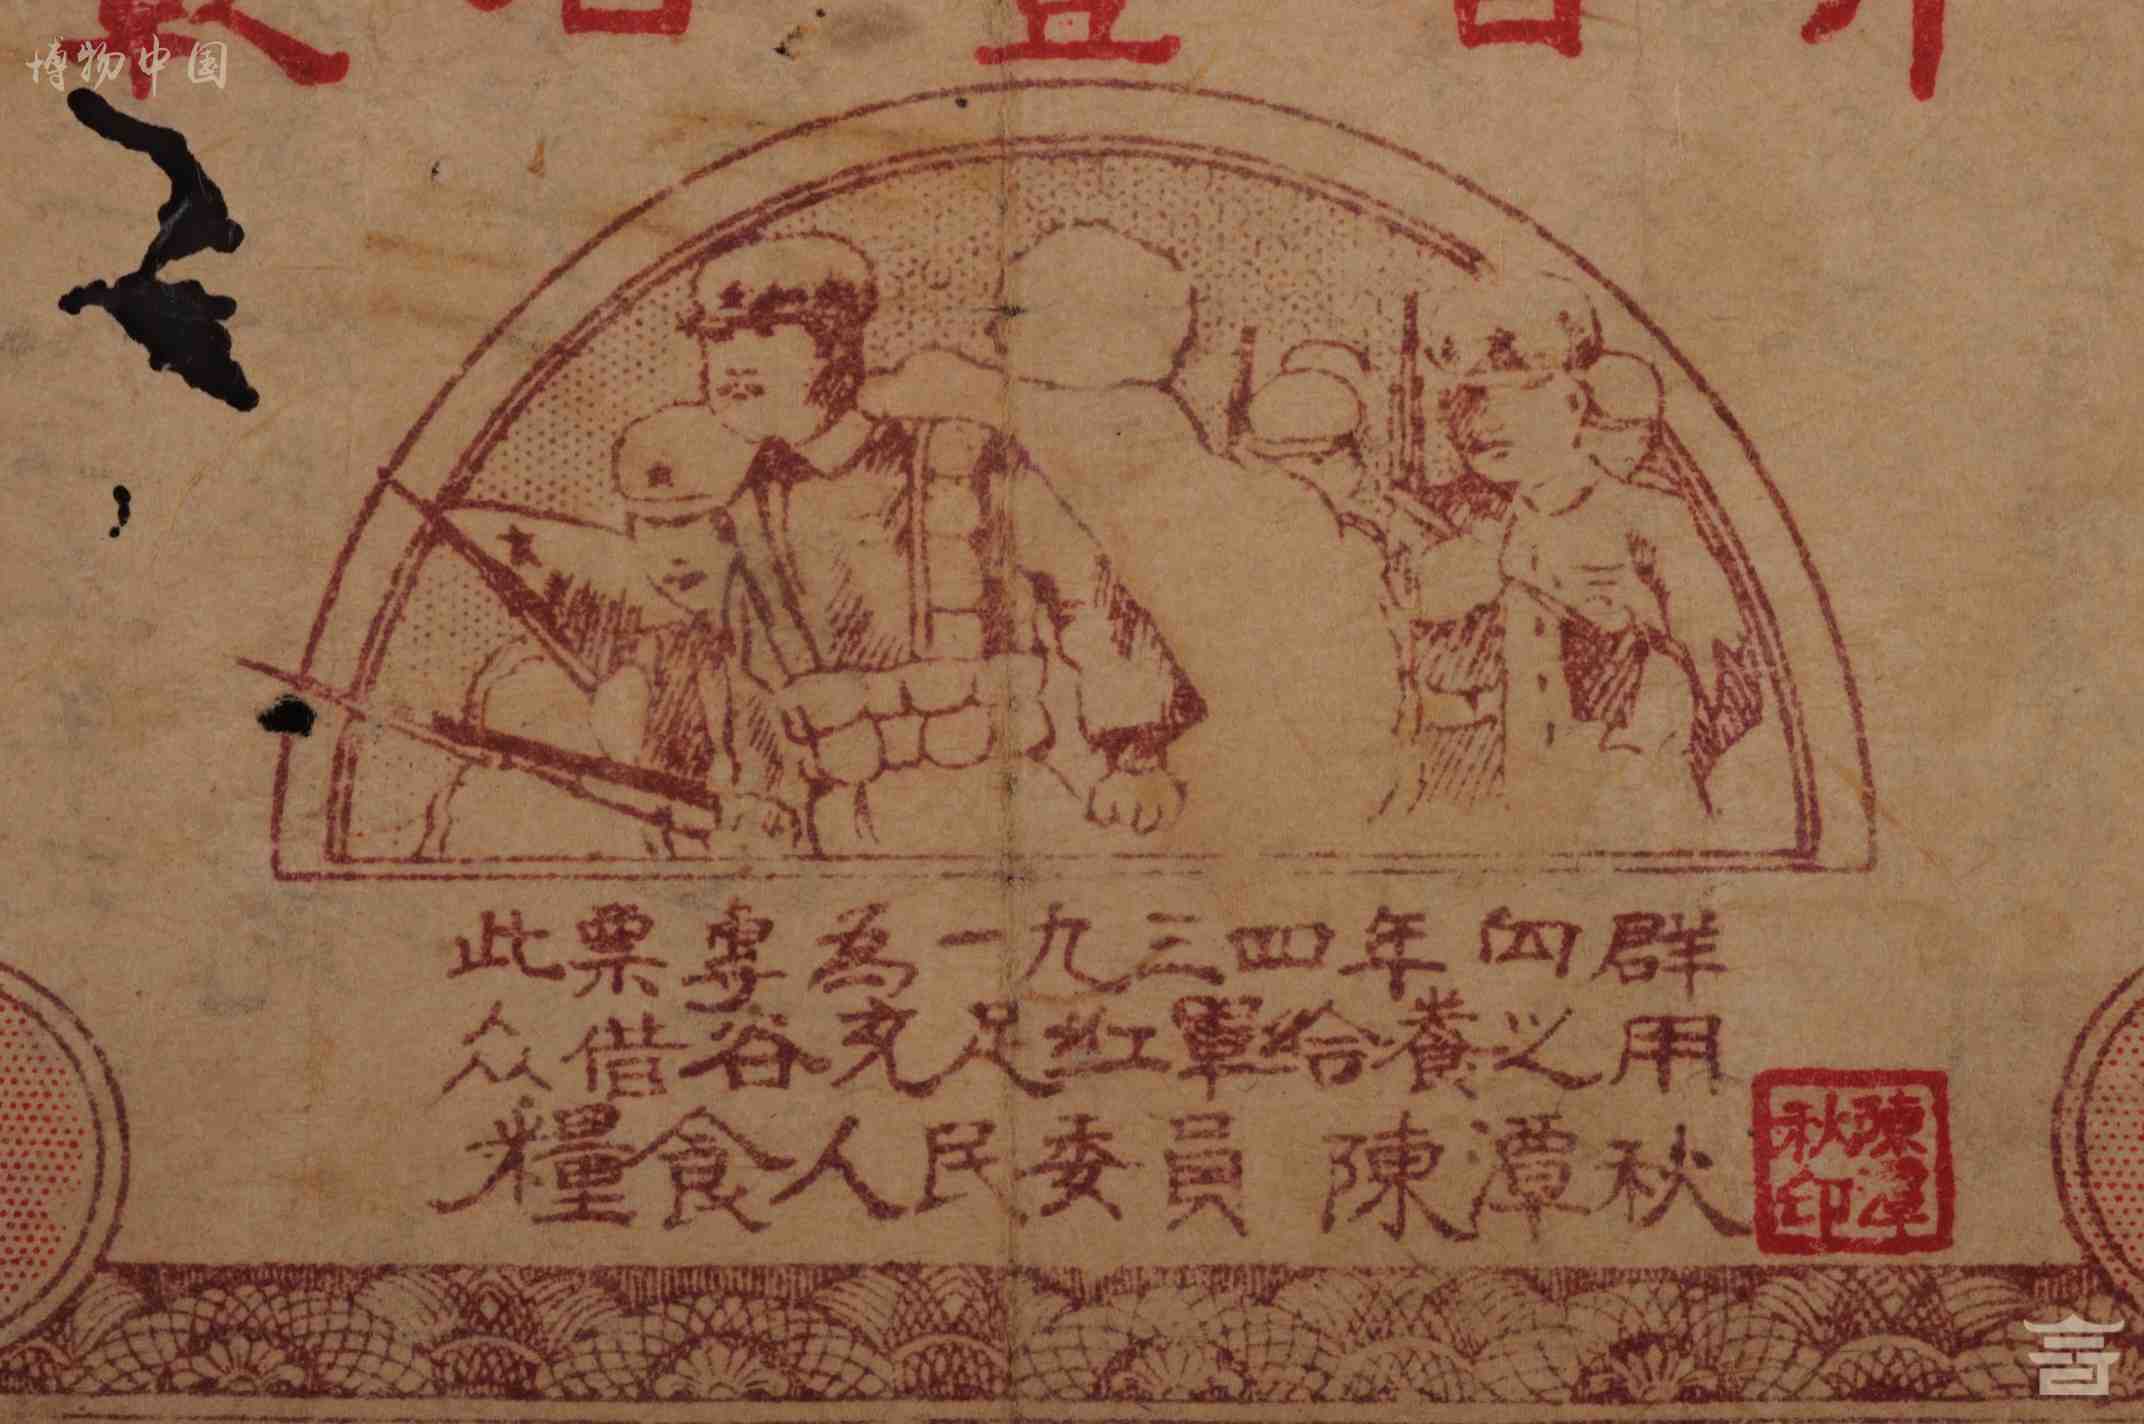 博物中国
此票專為一九三四年向群
众借谷充足紅軍給養之用
糧食人民委員 陳潭秋
陳潭秋印